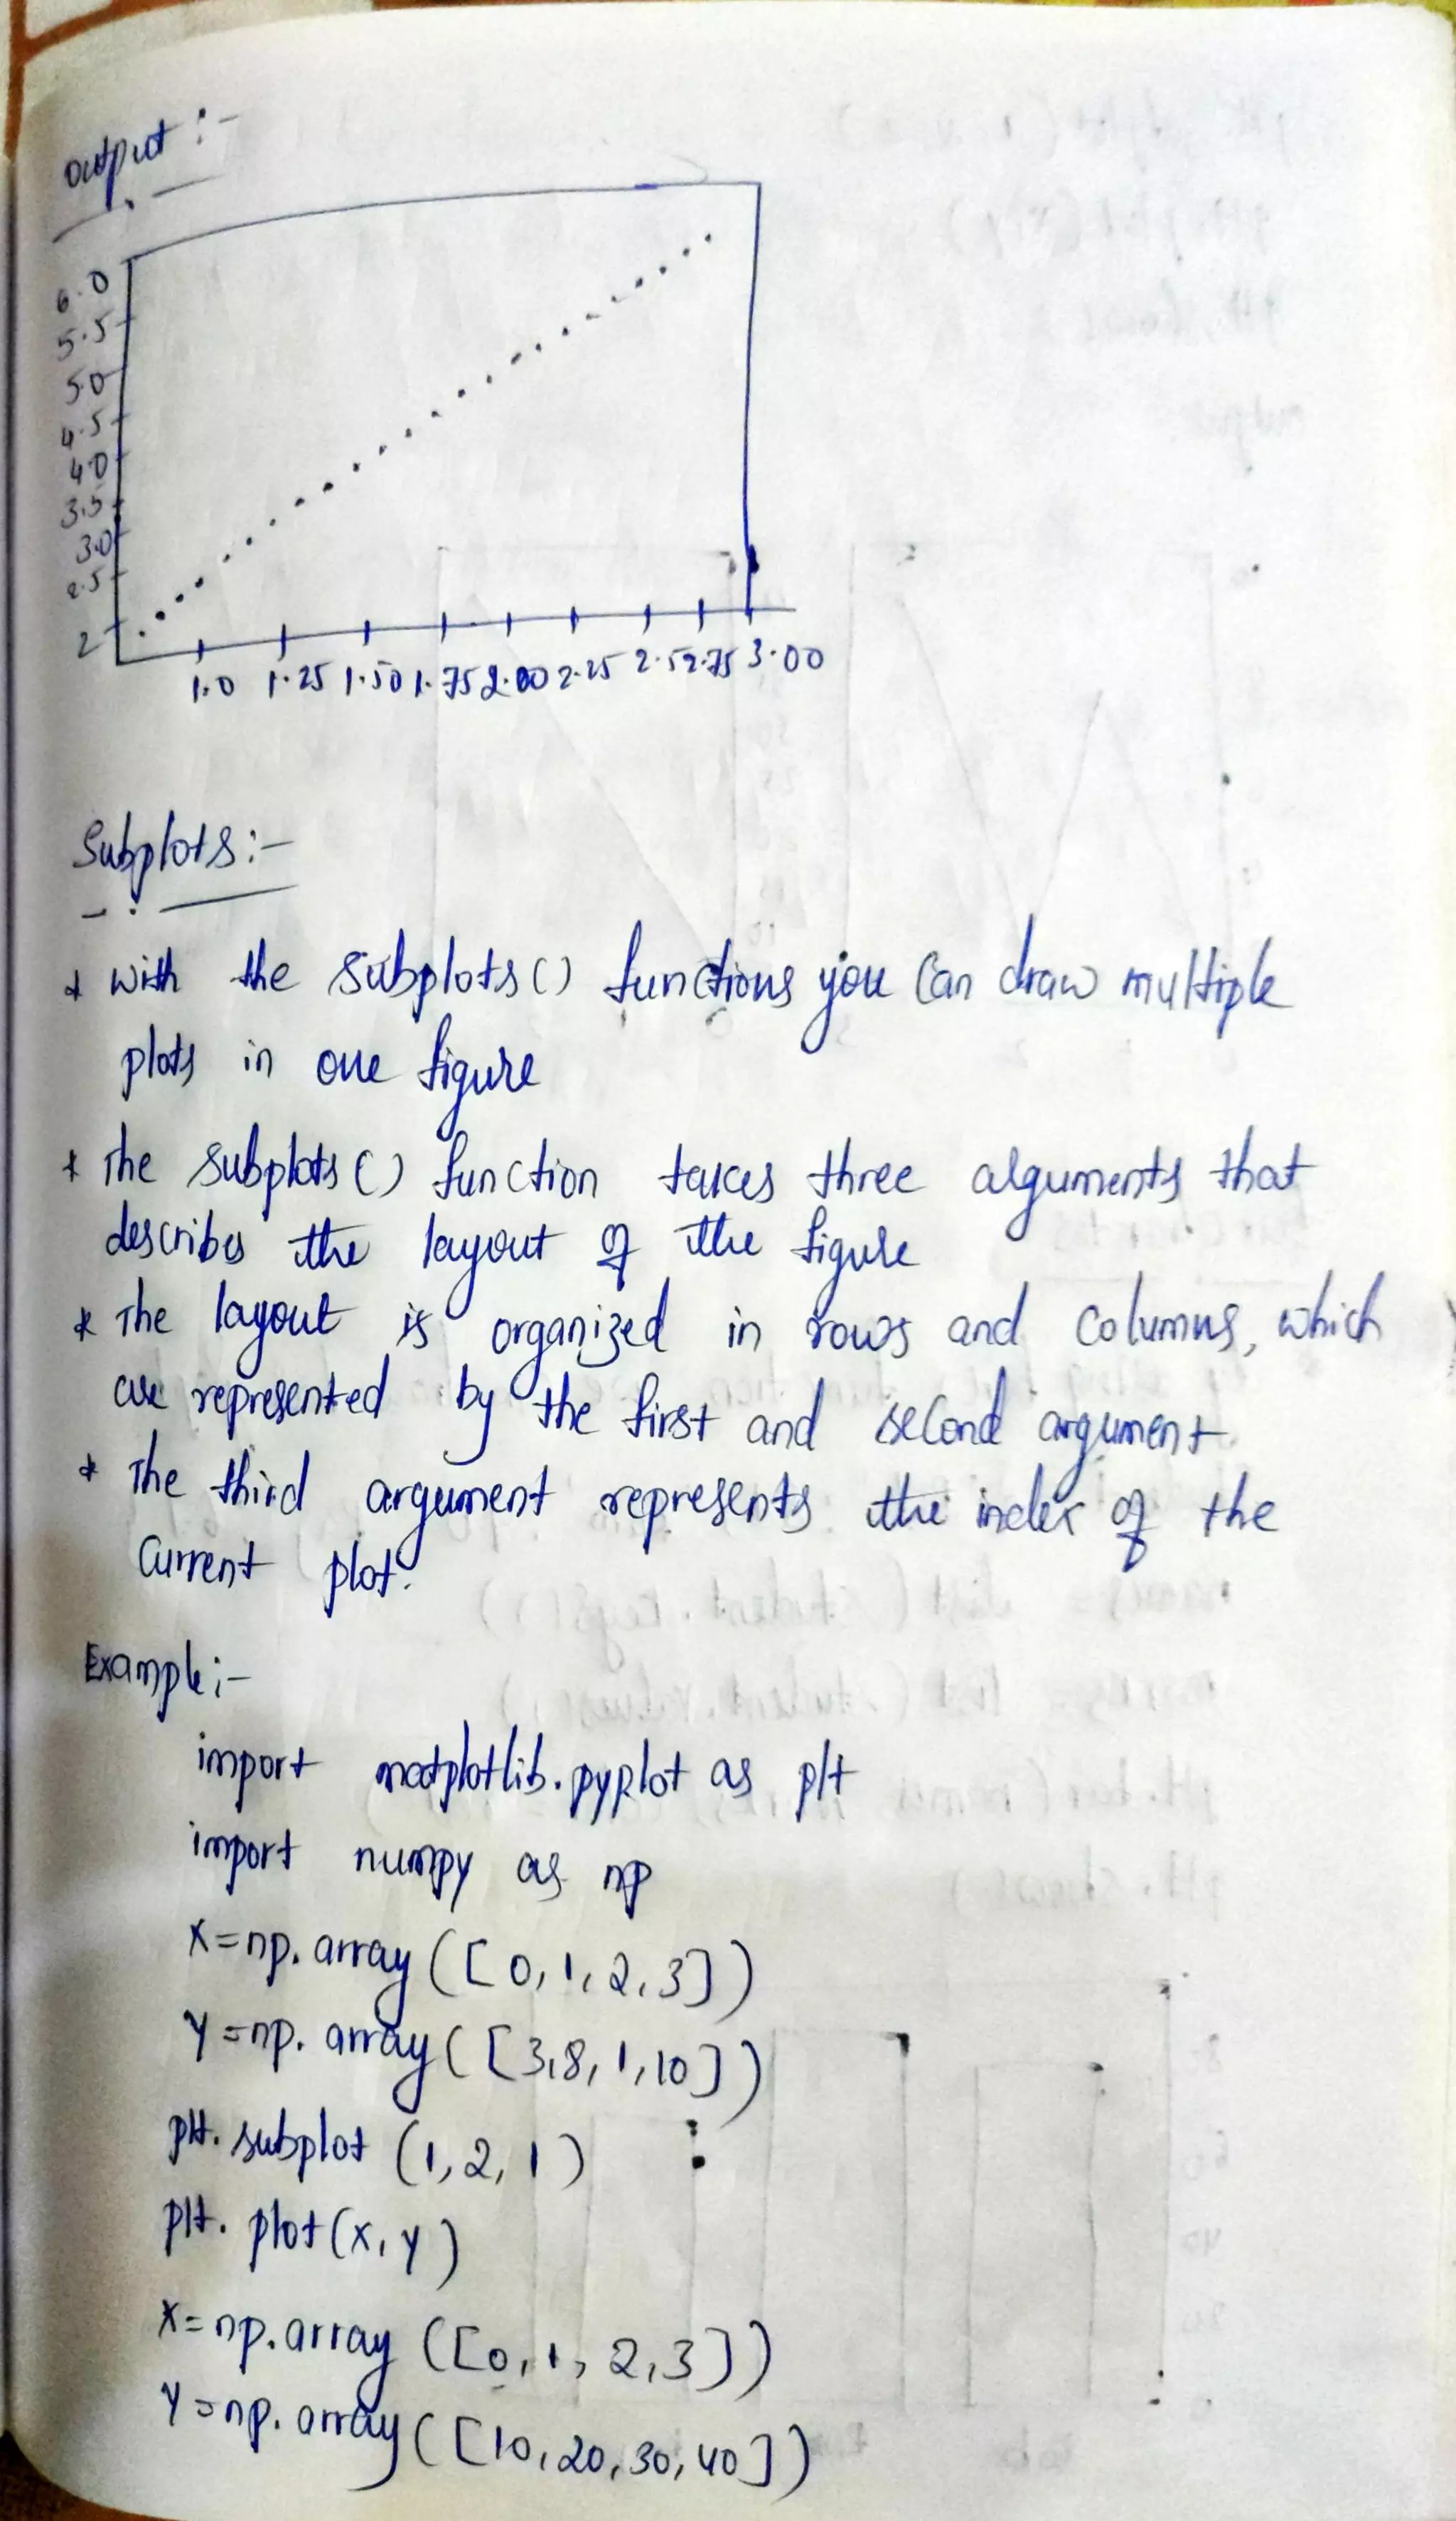 output :-
6.0
5.5
5.0
4.5
4.0
3.5
3.0
2.5
2
1.0 1.25 1.50 1.75 2.00 2.25 2.5 2.75 3.00
Subplots:-
* with the subplots() functions you can draw multiple
plots in one figure
* The subplots() function takes three arguments that
describes the layout of the figure
* The layout is organized in rows and columns, which
are represented by the first and second argument.
* The third argument represents the index of the
current plot.
Example:-
import matplotlib.pyplot as plt
import numpy as np
x=np.array([0,1,2,3])
y=np.array([3,8,1,10])
plt.subplot (1,2,1)
plt.plot(x,y)
x=np.array([0,1,2,3])
y=np.array([10,20,30,40])